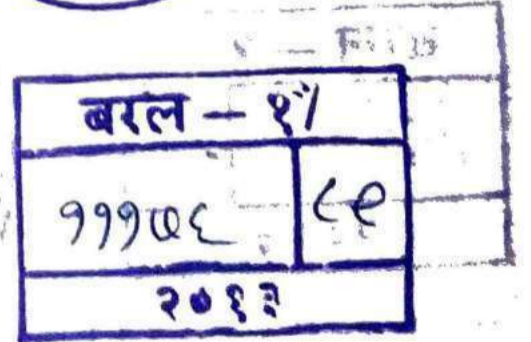 बरल – १/
१११७६ ८९
२०१३